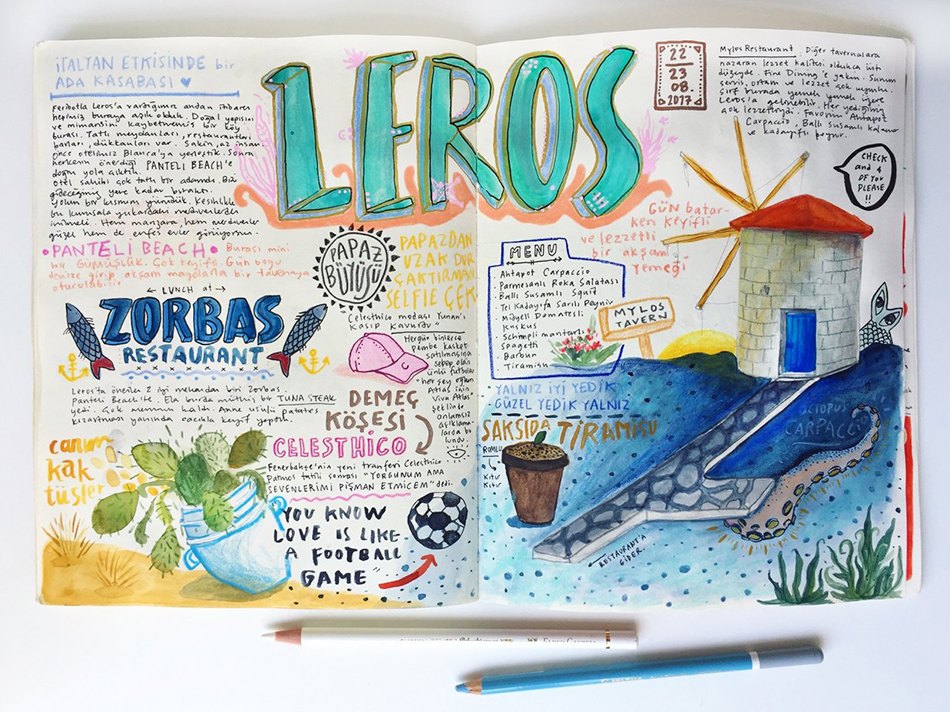 İTALYAN ETKİSİNDE bir
ADA KASABASI
Feribotla Leros'a vardığımız andan itibaren
hepimiz buraya aşık olduk. Doğal yapısını
ve mimarisini kaybetmemiş bir köy
burası. Tatlı meydanları, restaurantları
barları, dükkanları var. Sakin, az insan.
önce otelimiz Blanca'ya yerleştik. Sonra
herkesin önerdiği PANTELI BEACH'e
doğru yola çıktık.
Otel sahibi çok tatlı bir adamdı. Bizi
gideceğimiz yere kadar bıraktı.
Yolun bir kısmını yürüdük. Kesinlikle
bu kumsala yukardaki merdivenlerden
inilmeli. Hem manzara hem merdivenler
güzel hem de enfes evler görüyorsun.
PANTELI BEACH
Burası mini
bir Gümüşlük. Çok keyifli. Gün boyu
denize girip akşam masalarda bir tavernaya
oturulabilir.
LUNCH at
ZORBAS
RESTAURANT
Leros'ta önerilen 2 iyi mekandan biri Zorbas.
Panteli Beach'te. Ela burda müthiş bir TUNA STEAK
yedi. Çok memnun kaldı. Anne usulü patates
kızartması yanında cacıkla keyif yaptık.
canım
kak
tüsler
LEROS
PAPAZ
BULUŞU
PAPAZDAN
UZAK DUR
ÇAKTIRMADAN
SELFIE ÇEK
Celesthico modası Yunan'ı
kasıp kavurdu"
Hergün binlerce
pembe kasket
satılmasına
sebep olan
ünlü futbolcu
"her şey oğlum
Atlas için
Viva Atlas"
şeklinde
anlamsız
açıklama-
larda bu
lundu.
DEMEÇ
KÖŞESİ
CELESTHICO
Fenerbahçe'nin yeni tranferi Celesthico
Patmos tatili sonrası "YORGUNUM AMA
SEVENLERİMİ PİŞMAN ETMİCEM" dedi.
"YOU KNOW
LOVE IS LIKE
A FOOTBALL
GAME"
22
23
08.
2017
Mylos Restaurant. Diğer tavernalara
nazaran lezzet kalitesi oldukça üst
düzeyde. Fine Dining'e yakın. Sunum
servis, ortam ve lezzet çok uyumlu.
sırf burada yemek yemek üzere
Leros'a gelinebilir. Her yediğimiz
çok lezzetliydi. Favorim Ahtapot
Carpaccio, Ballı susamlı kalamar
ve kadayıflı peynir.
CHECK
and 4
OF YOU
PLEASE
!!
GÜN batar-
ken keyifli
ve lezzetli
bir akşam
yemeği
MENU
Ahtapot Carpaccio
Parmesanlı Roka Salatası
Ballı Susamlı Squid
Tel Kadayıfa Sarılı Peynir
Midyeli Domatesli
Kuskus
Schimpli mantarlı
Spagetti
Barbun
Tiramisu
MYLOS
TAVERN
YALNIZ İYİ YEDİK
GÜZEL YEDİK YALNIZ
SAKSIDA TİRAMİSU
ROMLU
Kıtır
Kıtır
OCTOPUS
CARPACCI
RESTAURANT'A
GİDER.